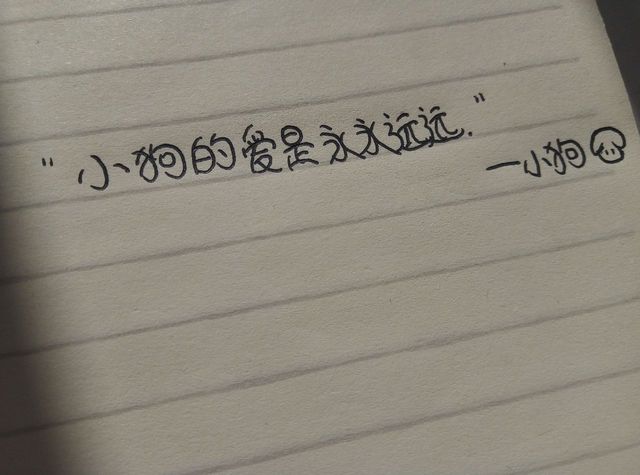 "小狗的爱是永永远远."
—小狗